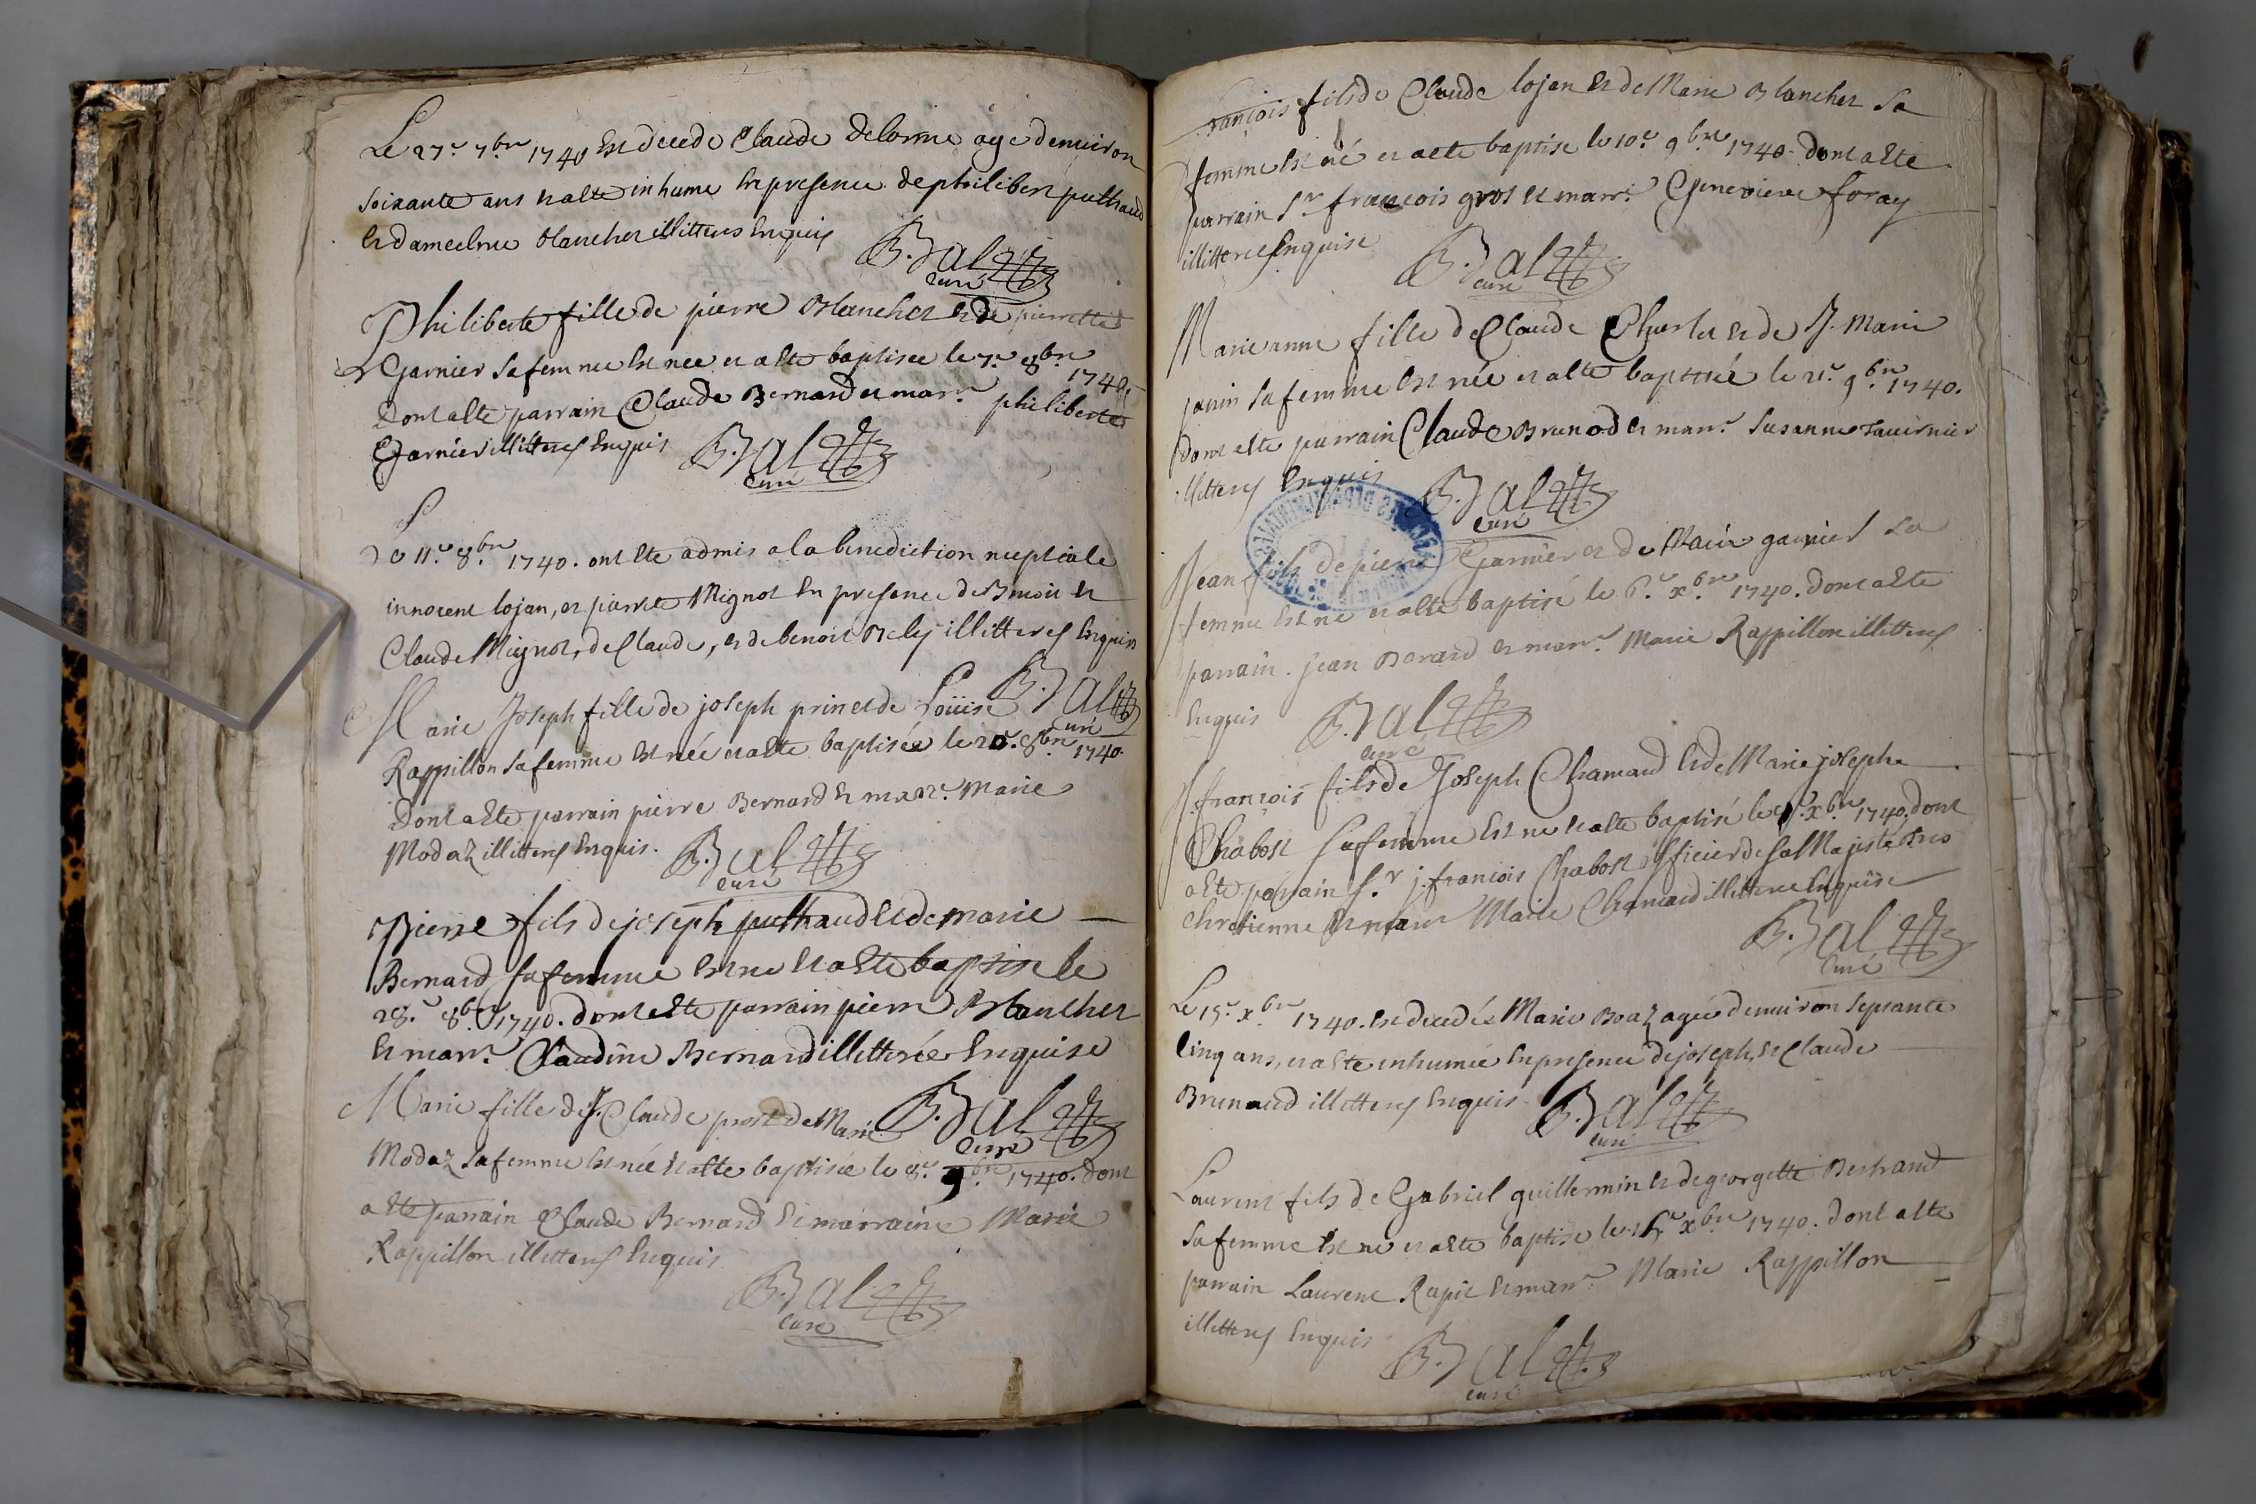 Le 27.e 7.bre 1740 Est decede Claude Delorme âgé denuiron
soixante ans et a été inhumé En presence de philibert puthaud
Et dameelme blanchet illitteres Enquis
B. Bal
curé
Philiberte fille de pierre Blanchet et de pierrette
Garnier sa femme Est née et a Eté baptisée le 7.e 8.bre 1740.
Dont a eté parrain Claude Bernard et marr.e philiberte
Garnier illitteres Enquis
B. Bal
curé
Le 11.e 8.bre 1740. ont Eté admis a la benediction nuptiale
innocent lojan, et pierrete Mignot En presence de Benoit et
Claude Mignot, de Claude, et de benoit Bely illitteres Enquis
B. Bal
curé
Marie Joseph fille de joseph prin et de Loüise
Rappillon sa femme Est née et a Eté baptisée le 20.e 8.bre 1740.
Dont a Eté parrain pierre Bernard Et marr.e Marie
Modaz illitteres Enquis.
B. Bal
curé
Pierre fils de joseph puthaud Et de marie
Bernard sa femme Est né Et a Eté baptisé le
28.e 8.bre 1740. dont a Eté parrain pierre Blanchet
Et marr.e Claudine Bernard illitterée Enquise
B. Bal
curé
Marie fille de J. Claude prost et de Marie
Modaz sa femme Est née Et a Eté baptisée le 8.e 9.bre 1740. Dont
a Eté parrain Claude Bernard Et marraine Marie
Rappillon illitteres Enquis
B. Bal
curé
françois fils de Claude lojan Et de Marie Blanchet sa
femme Est né et a eté baptisé le 10.e 9.bre 1740. dont a Eté
parrain S.r francois gros et marr.e Genevieve foray
illitteree Enquise
B. Bal
curé
Marie anne fille de Claude Charlet Et de J. Marie
janin sa femme Est née et a Eté baptisée le 21.e 9.bre 1740.
dont a Eté parrain Claude Brunod Et marr.e Susanne Tavernier
illitteres Enquis
B. Bal
curé
Jean fils de pierre Garnier et de Marie garnier sa
femme Est né et a Eté baptisé le 6.e x.bre 1740. dont a Eté
parrain. jean Berard Et marr.e Marie Rappillon illitteres
Enquis
B. Bal
curé
J. françois fils de Joseph Chamard Et de Marie josephe
Chabost sa femme Est né Et a Eté baptisé le x.bre 1740. dont
a Eté parrain S.r j. francois Chabost officier de sa Majesté tres
chretienne Et marr Marie Chamard illitteree Enquise
B. Bal
curé
Le 15.e x.bre 1740. Est decedée Marie Boaz agée denuiron septante
cinq ans, et a Eté inhumée En presence de joseph, Et Claude
Brunaud illitteres Enquis
B. Bal
curé
Laurent fils de Gabriel guillermin Et de georgette Bertrand
sa femme Est né et a Eté baptisé le x.bre 1740. dont a Eté
parrain Laurent Rapit Et marr.e Marie Rappillon
illitteres Enquis
B. Bal
curé